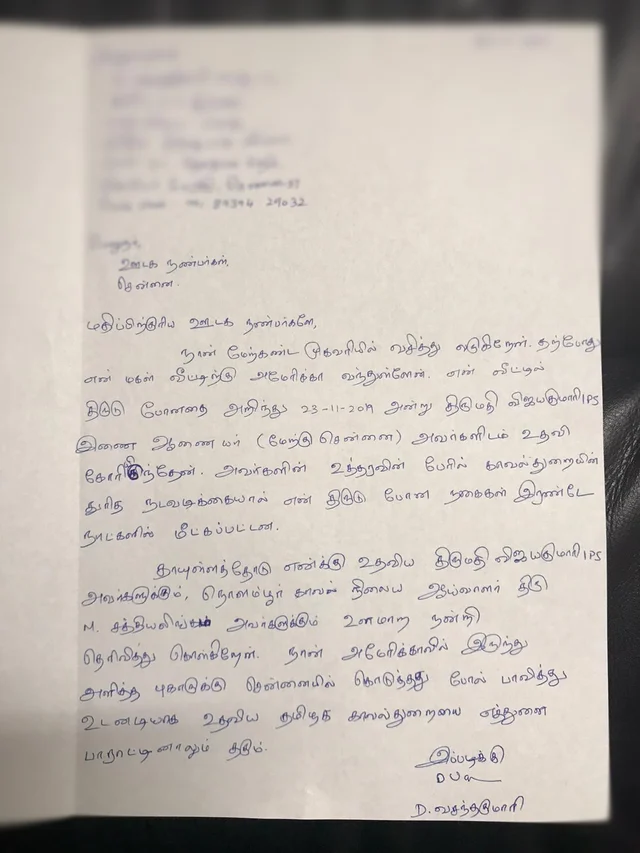 89394 29032
ஊடக நண்பர்கள்,
சென்னை.
மதிப்பிற்குரிய ஊடக நண்பர்களே,
நான் மேற்கண்ட முகவரியில் வசித்து வருகிறேன். தற்போது
என் மகள் வீட்டிற்கு அமெரிக்கா வந்துள்ளேன். என் வீட்டில்
திருடு போனதை அறிந்து 23-11-2019 அன்று திருமதி விஜயகுமாரி IPS
இணை ஆணையர் (மேற்கு சென்னை) அவர்களிடம் உதவி
கோரியிருந்தேன். அவர்களின் உத்தரவின் பேரில் காவல்துறையின்
துரித நடவடிக்கையால் என் திருடு போன நகைகள் இரண்டே
நாட்களில் மீட்கப்பட்டன.
தாயுள்ளத்தோடு எனக்கு உதவிய திருமதி விஜயகுமாரி IPS
அவர்களுக்கும், நொளம்பூர் காவல் நிலைய ஆய்வாளர் திரு
M. சத்தியலிங்கம் அவர்களுக்கும் உளமார நன்றி
தெரிவித்து கொள்கிறேன். நான் அமெரிக்காவில் இருந்து
அளித்த புகாருக்கு சென்னையில் கொடுத்தது போல் பாவித்து
உடனடியாக உதவிய தமிழக காவல்துறையை எத்துனை
பாராட்டினாலும் தகும்.
இப்படிக்கு
D. வசந்தகுமாரி